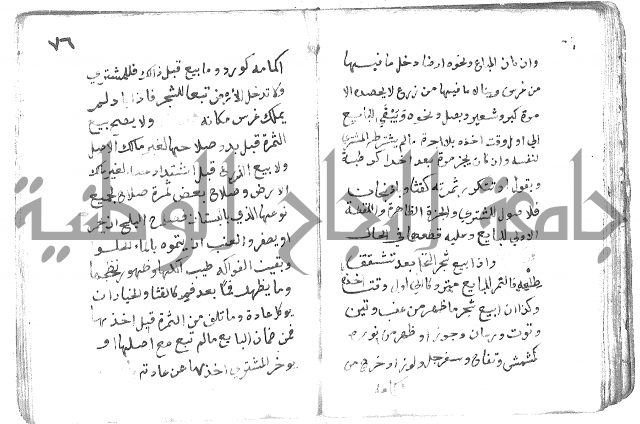 وان كان المباع ونحوه ارضا دخل ما فيها
من غرس وبناء لا ما فيها من زرع لا يحصد الا
مرة كبر وشعير وبصل ونحوه ويبقى للبايع
الى اول وقت اخذه بلا اجرة مالم يشترطه المشتري
لنفسه وان كان يجز مرة بعد اخرى كرطبة
وبقول او تتكرر ثمرته كقثا وباذنجان
فالاصول للمشتري والجزة الظاهرة واللقطة
الاولى للبايع وعليه قطعها في الحال
واذا بيع شجر النخل بعد تشقق
طلعه فالثمر للبايع متروكا الى اول وقت اخذه
وكذا ان بيع شجر ما ظهر من عنب وتين
وتوت ورمان وجوز او ظهر من نوره
كمشمش وتفاح وسفرجل ولوز او خرج من
اكمامه
٧٦
اكمامه كورد وما بيع قبل ذلك فللمشتري
ولا تدخل الارض تبعا للشجر فاذا باد لم
يملك غرس مكانه ولا يصح بيع
الثمرة قبل بدو صلاحها لغير مالك الاصل
ولا بيع الزرع قبل اشتداد حبه لغير مالك
الارض وصلاح بعض ثمرة صلاح لجميع
نوعها الذي بالبستان فصلاح البلح ان يحمر
او يصفر والعنب ان يتموه بالماء الحلو
وبقية الفواكه طيب اكلها وظهور نضجها
وما يظهر فما بعد فم كالقثا والخيارات
يوكل عادة وما تلف من الثمرة قبل اخذها
فمن ضمان البايع مالم تبع مع اصلها او
يوخر المشتري اخذها عن عادته
جامعة النجاح الوطنية